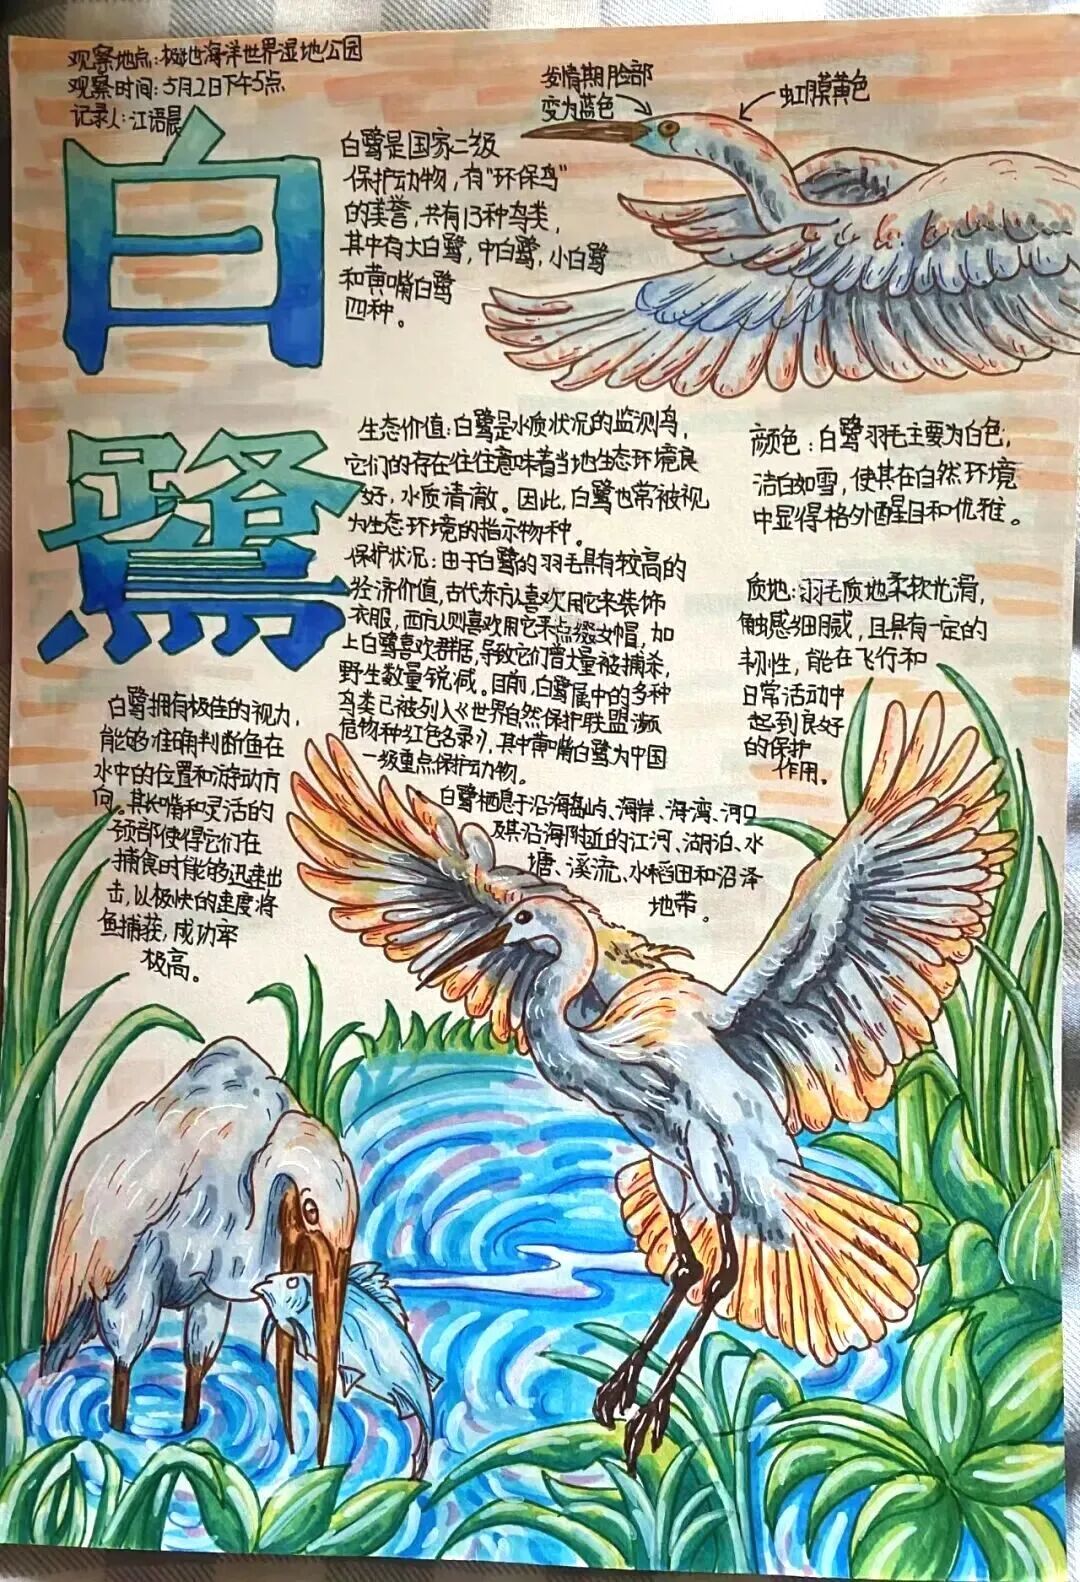 观察地点:极地海洋世界湿地公园
观察时间:5月2日下午5点
记录人:江语晨
白
鹭
白鹭是国家二级
保护动物,有“环保鸟”
的美誉,共有13种鸟类,
其中有大白鹭,中白鹭,小白鹭
和黄嘴白鹭
四种。
发情期脸部
变为蓝色
虹膜黄色
生态价值:白鹭是水质状况的监测鸟,
它们的存在往往意味着当地生态环境良
好,水质清澈。因此,白鹭也常被视
为生态环境的指示物种。
保护状况:由于白鹭的羽毛具有较高的
经济价值,古代东方人喜欢用它来装饰
衣服,西方人则喜欢用它来点缀女帽,加
上白鹭喜欢群居,导致它们曾大量被捕杀,
野生数量锐减。目前,白鹭属中的多种
鸟类已被列入《世界自然保护联盟濒
危物种红色名录》,其中黄嘴白鹭为中国
一级重点保护动物。
颜色:白鹭羽毛主要为白色,
洁白如雪,使其在自然环境
中显得格外醒目和优雅。
质地:羽毛质地柔软光滑,
触感细腻,且具有一定的
韧性,能在飞行和
日常活动中
起到良好
的保护
作用。
白鹭拥有极佳的视力,
能够准确判断鱼在
水中的位置和游动方
向。其长嘴和灵活的
颈部使得它们在
捕食时能够迅速出
击,以极快的速度将
鱼捕获,成功率
极高。
白鹭栖息于沿海岛屿、海岸、海湾、河口
及其沿海附近的江河、湖泊、水
塘、溪流、水稻田和沼泽
地带。